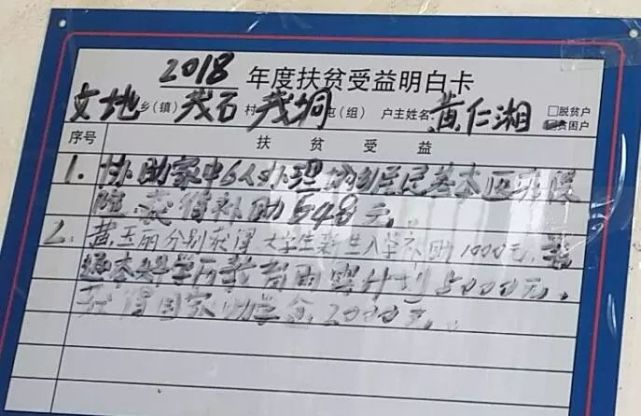 2018 年度扶贫受益明白卡
文地 乡(镇) 茂石 村 茂垌 屯(组) 户主姓名: 黄仁湘 □脱贫户
贫困户
序号 扶贫受益
1. 协助家中6人办理城乡居民基本医疗保
险,获得补助548元。
2. 黄玉丽分别获得大学生新生入学补助1000元,普
通本科学历教育雨露计划5000元,
获得国家助学金2000元。